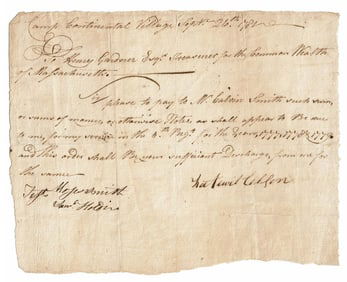 Camp Continental Village Sept. 26th 1781
To Henry Gardner Esqr. Treasurer for the Common Wealth
of Massachusetts.
Sr. please to pay to Mr. Calvin Smith such sum,
or sums of money or otherwise Notes as shall appear to Be due
to me for my service in the 6th Regt. for the Years 1777 1778 & 1779
and this order shall Be your sufficient Discharge from me for
the same
Test. Smith
Holden